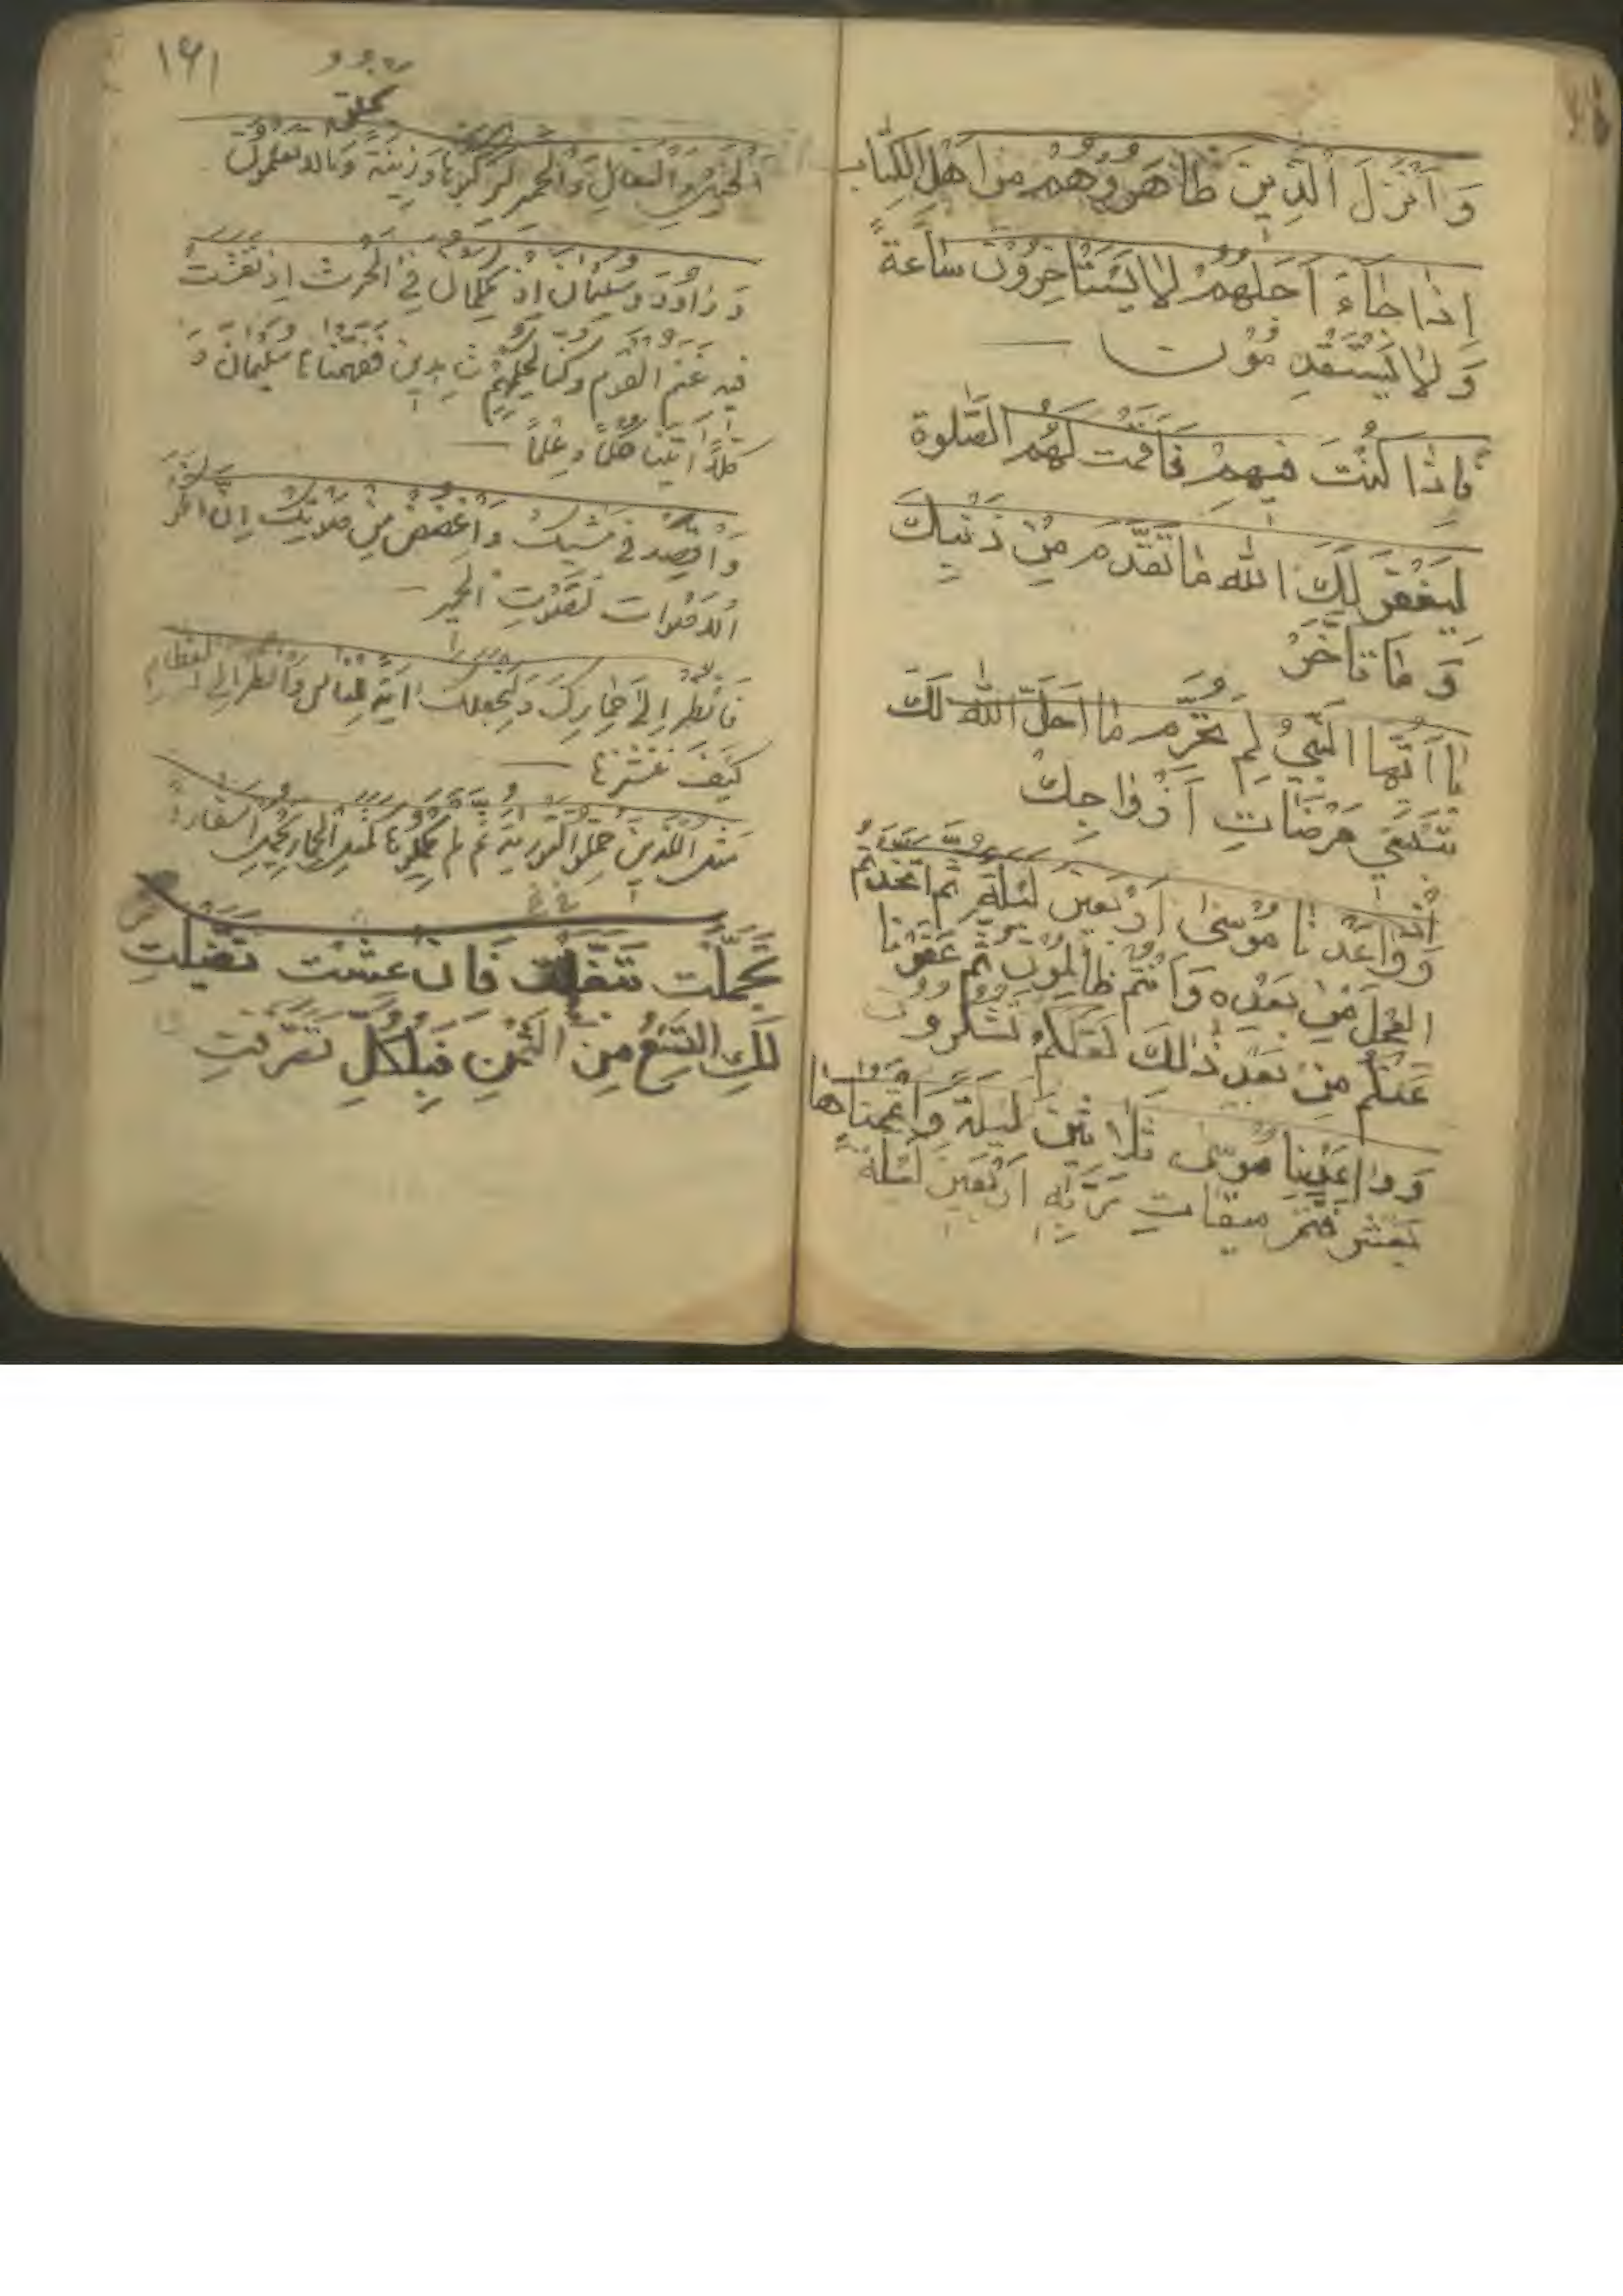 وَ اَنْزَلَ الَّذِينَ ظَاهَرُوهُمْ مِنْ اَهْلِ الكِتَاب
اِذَا جَاءَ اَجَلُهُمْ لَا يَسْتَاخِرُونَ سَاعَةً
وَ لَا يَسْتَقْدِمُوْنَ
فَاِذَا كُنْتَ فِيهِمْ فَاَقَمْتَ لَهُمُ الصَّلوةَ
لِيَغْفِرَ لَكَ اللّٰه مَا تَقَدَّمَ مِنْ ذَنْبِكَ
وَ مَا تَاَخَّرَ
يَا اَيُّهَا النَّبِيُّ لِمَ تُحَرِّمُ مَا اَحَلَّ اللّٰه لَكَ
تَبْتَغِي مَرْضَاتِ اَزْوَاجِكَ
وَ وَاعَدْنَا مُوسٰى اَرْبَعِينَ لَيْلَةً ثُمَّ اتَّخَذْتُمُ
العِجْلَ مِنْ بَعْدِه وَ اَنْتُمْ ظَالِمُونَ ثُمَّ عَفَوْنَا
عَنْكُمْ مِنْ بَعْدِ ذٰلِكَ لَعَلَّكُمْ تَشْكُرُونَ
وَ وَاعَدْنَا مُوسٰى ثَلَاثِينَ لَيْلَةً وَ اَتْمَمْنَاهَا
بِعَشْرٍ فَتَمَّ مِيقَاتُ رَبِّهِ اَرْبَعِينَ لَيْلَةً
١٤١
يخلق
اَلْخَيْلَ وَ الْبِغَالَ وَ الْحَمِيرَ لِتَرْكَبُوهَا وَ زِينَةً وَ مَالا تَعْلَمُونَ
وَ دَاوُدَ وَ سُلَيْمَانَ اِذْ يَحْكُمَانِ فِي الْحَرْثِ اِذْ نَفَشَتْ
فِيهِ غَنَمُ الْقَوْمِ وَ كُنَّا لِحُكْمِهِمْ شَاهِدِينَ فَفَهَّمْنَاهَا سُلَيْمَانَ وَ
كُلًّا اٰتَيْنَا حُكْمًا وَ عِلْمًا
وَ اقْصِدْ فِي مَشْيِكَ وَ اغْضُضْ مِنْ صَوْتِكَ اِنَّ اَنْكَرَ
الاَصْوَاتِ لَصَوْتُ الْحَمِيرِ
فَانْظُرْ اِلَى حِمَارِكَ وَ لِنَجْعَلَكَ اٰيَةً لِلنَّاسِ وَ انْظُرْ اِلَى الْعِظَامِ
كَيْفَ نُنْشِزُهَا
مَثَلُ الَّذِينَ حُمِّلُوا التَّوْرٰيةَ ثُمَّ لَمْ يَحْمِلُوهَا كَمَثَلِ الْحِمَارِ يَحْمِلُ اَسْفَارًا
تَجَمَّلْتِ تَبَغَّلْتِ فَاِنْ عِشْتِ تَفَيَّلْتِ
لَكِ التُّسْعُ مِنَ الثُّمْنِ فَبِالْكُلِّ تَصَرَّفْتِ